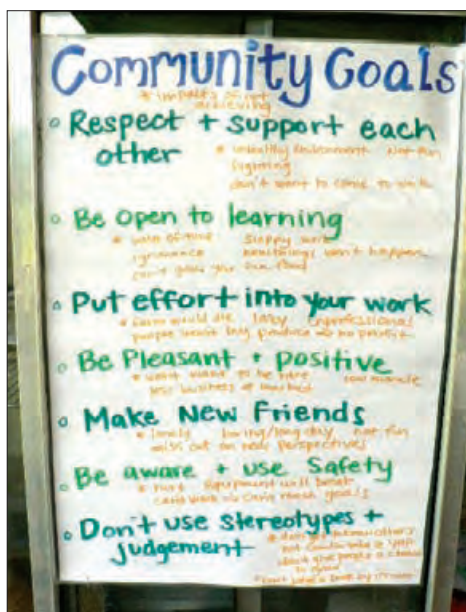 Community Goals
* impacts of not
achieving
Respect + support each
other
* unhealthy environment not fun
fighting
don't want to come to work
Be open to learning
* waste of time sloppy work
ignorance new things won't happen
can't grow your own food
Put effort into your work
* farm would die lazy unprofessional
people won't buy produce → no profit
Be Pleasant + positive
* won't want to be here low morale
less business @ market
Make New Friends
* lonely boring/long day not fun
miss out on new perspectives
Be aware + use Safety
* hurt equipment will break
can't work can't reach goals
Don't use stereotypes +
judgement
not comfortable @ Yoff
don't give people a chance